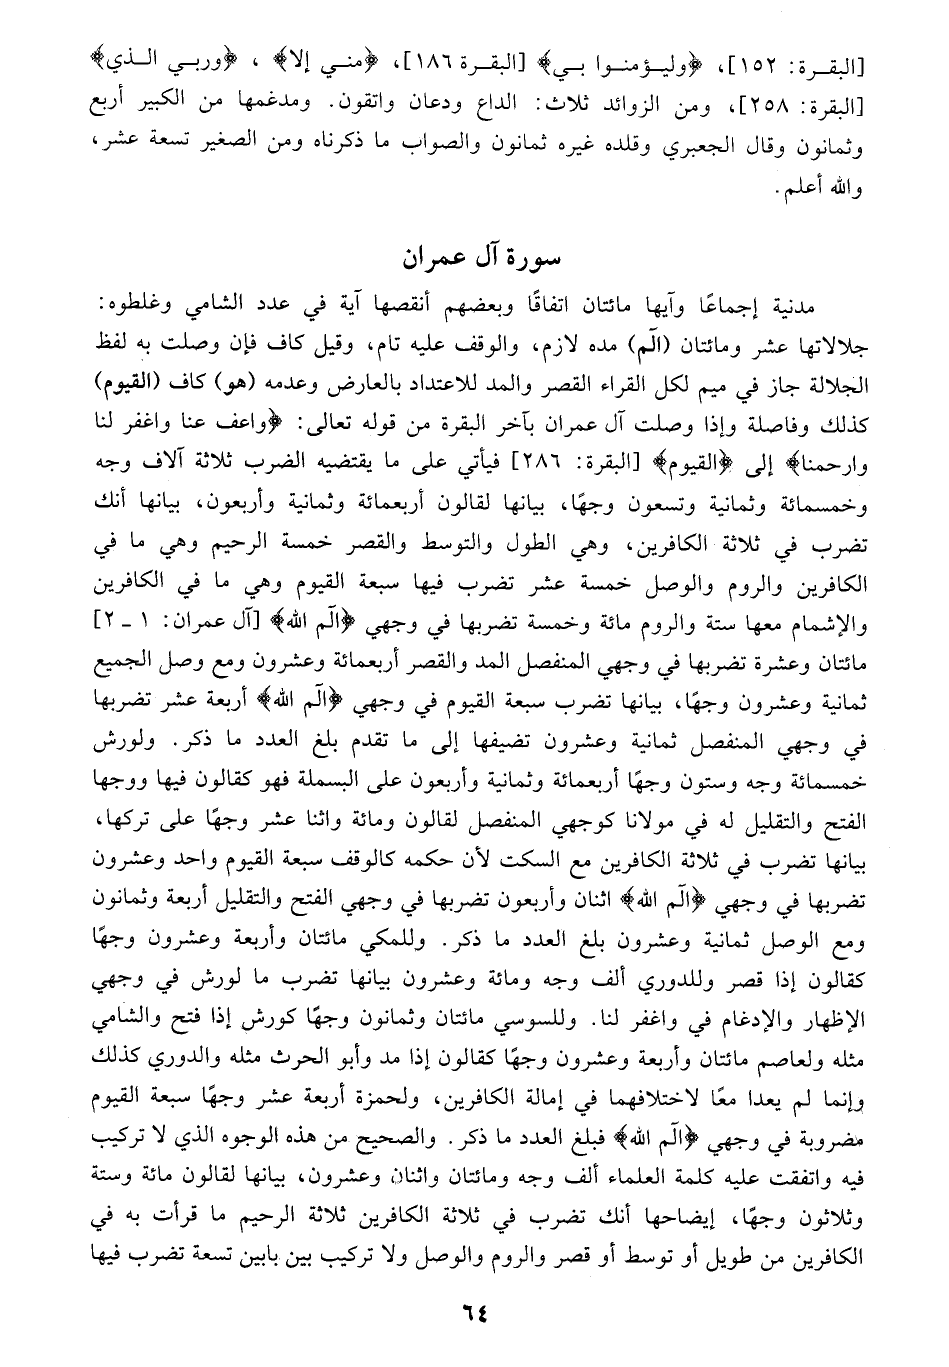 [البقرة: ١٥٢]، ﴿وليؤمنوا بي﴾ [البقرة ١٨٦]، ﴿مني إلا﴾ ، ﴿وربي الذي﴾
[البقرة: ٢٥٨]، ومن الزوائد ثلاث: الداع ودعان واتقون. ومدغمها من الكبير أربع
وثمانون وقال الجعبري وقلده غيره ثمانون والصواب ما ذكرناه ومن الصغير تسعة عشر،
والله أعلم.
سورة آل عمران
مدنية إجماعًا وآيها مائتان اتفاقًا وبعضهم أنقصها آية في عدد الشامي وغلطوه:
جلالاتها عشر ومائتان (الٓم) مده لازم، والوقف عليه تام، وقيل كاف فإن وصلت به لفظ
الجلالة جاز في ميم لكل القراء القصر والمد للاعتداد بالعارض وعدمه (هو) كاف (القيوم)
كذلك وفاصلة وإذا وصلت آل عمران بآخر البقرة من قوله تعالى: ﴿واعف عنا واغفر لنا
وارحمنا﴾ إلى ﴿القيوم﴾ [البقرة: ٢٨٦] فيأتي على ما يقتضيه الضرب ثلاثة آلاف وجه
وخمسمائة وثمانية وتسعون وجهًا، بيانها لقالون أربعمائة وثمانية وأربعون، بيانها أنك
تضرب في ثلاثة الكافرين، وهي الطول والتوسط والقصر خمسة الرحيم وهي ما في
الكافرين والروم والوصل خمسة عشر تضرب فيها سبعة القيوم وهي ما في الكافرين
والإشمام معها ستة والروم مائة وخمسة تضربها في وجهي ﴿الٓم الله﴾ [آل عمران: ١ ـ ٢]
مائتان وعشرة تضربها في وجهي المنفصل المد والقصر أربعمائة وعشرون ومع وصل الجميع
ثمانية وعشرون وجهًا، بيانها تضرب سبعة القيوم في وجهي ﴿الٓم الله﴾ أربعة عشر تضربها
في وجهي المنفصل ثمانية وعشرون تضيفها إلى ما تقدم بلغ العدد ما ذكر. ولورش
خمسمائة وجه وستون وجهًا أربعمائة وثمانية وأربعون على البسملة فهو كقالون فيها ووجها
الفتح والتقليل له في مولانا كوجهي المنفصل لقالون ومائة واثنا عشر وجهًا على تركها،
بيانها تضرب في ثلاثة الكافرين مع السكت لأن حكمه كالوقف سبعة القيوم واحد وعشرون
تضربها في وجهي ﴿الٓم الله﴾ اثنان وأربعون تضربها في وجهي الفتح والتقليل أربعة وثمانون
ومع الوصل ثمانية وعشرون بلغ العدد ما ذكر. وللمكي مائتان وأربعة وعشرون وجهًا
كقالون إذا قصر وللدوري ألف وجه ومائة وعشرون بيانها تضرب ما لورش في وجهي
الإظهار والإدغام في واغفر لنا. وللسوسي مائتان وثمانون وجهًا كورش إذا فتح والشامي
مثله ولعاصم مائتان وأربعة وعشرون وجهًا كقالون إذا مد وأبو الحرث مثله والدوري كذلك
وإنما لم يعدا معًا لاختلافهما في إمالة الكافرين، ولحمزة أربعة عشر وجهًا سبعة القيوم
مضروبة في وجهي ﴿الٓم الله﴾ فبلغ العدد ما ذكر. والصحيح من هذه الوجوه الذي لا تركيب
فيه واتفقت عليه كلمة العلماء ألف وجه ومائتان واثنان وعشرون، بيانها لقالون مائة وستة
وثلاثون وجهًا، إيضاحها أنك تضرب في ثلاثة الكافرين ثلاثة الرحيم ما قرأت به في
الكافرين من طويل أو توسط أو قصر والروم والوصل ولا تركيب بين بابين تسعة تضرب فيها
٦٤